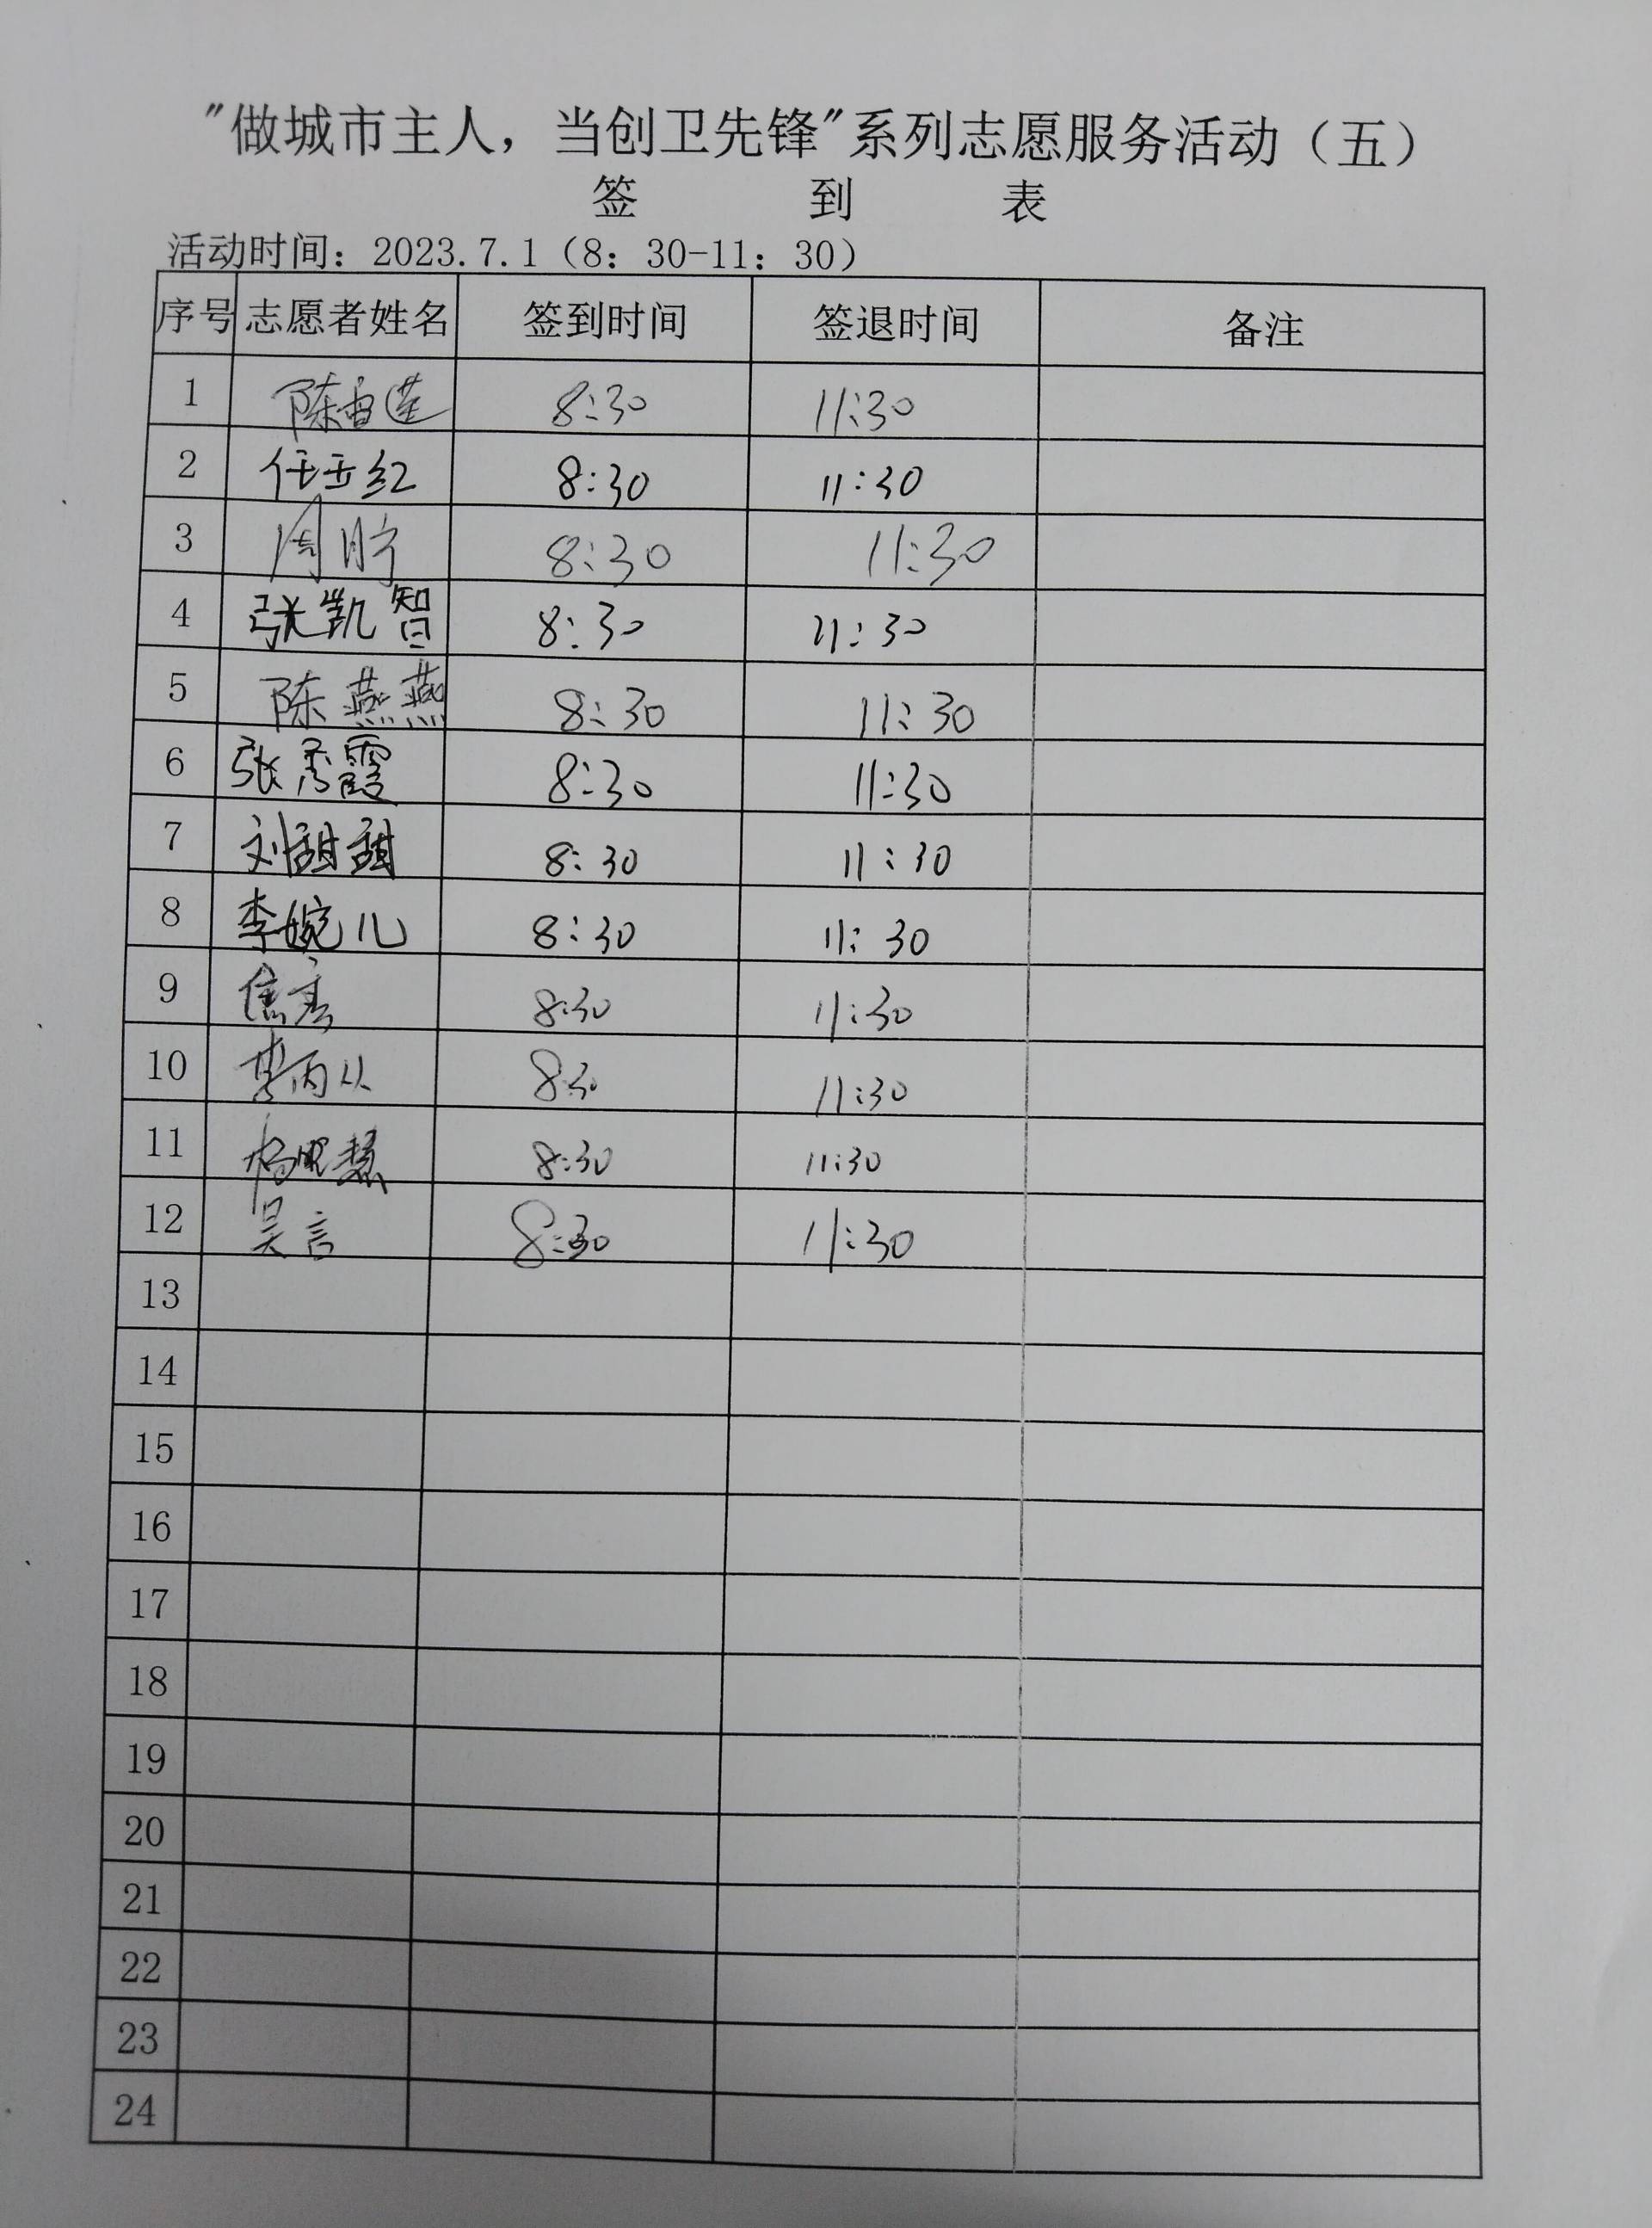 "做城市主人，当创卫先锋"系列志愿服务活动（五）
签 到 表
活动时间：2023.7.1（8：30-11：30）
序号 志愿者姓名 签到时间 签退时间 备注
1 陈 8:30 11:30
2 任玉红 8:30 11:30
3 周 8:30 11:30
4 张凯智 8:30 11:30
5 陈燕燕 8:30 11:30
6 张秀霞 8:30 11:30
7 刘甜甜 8:30 11:30
8 李婉儿 8:30 11:30
9 8:30 11:30
10 李丙从 8:30 11:30
11 杨 慧 8:30 11:30
12 吴言 8:30 11:30
13
14
15
16
17
18
19
20
21
22
23
24